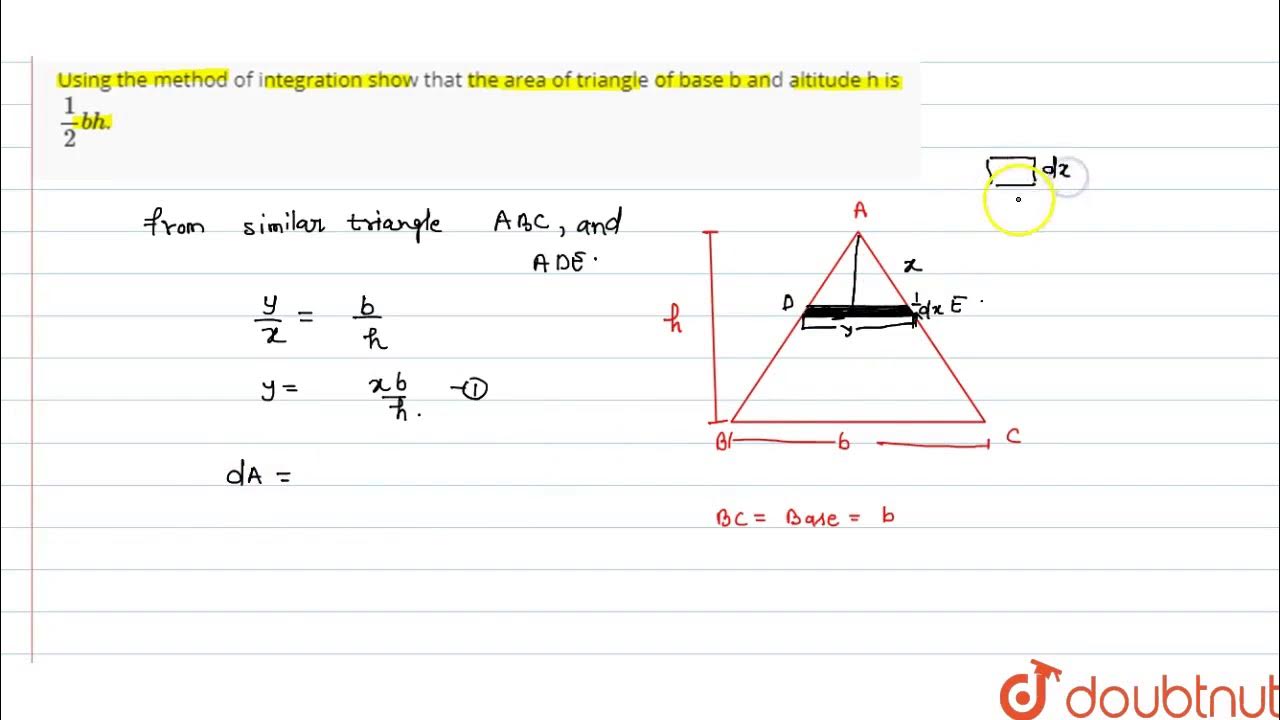 Using the method of integration show that the area of triangle of base b and altitude h is
1/2 bh.
dx
from similar triangle ABC, and
ADE.
A
x
D
1/dx E .
y
h
y/x = b/h
y = xb/h. -①
B
b
C
dA =
BC = Base = b
doubtnut